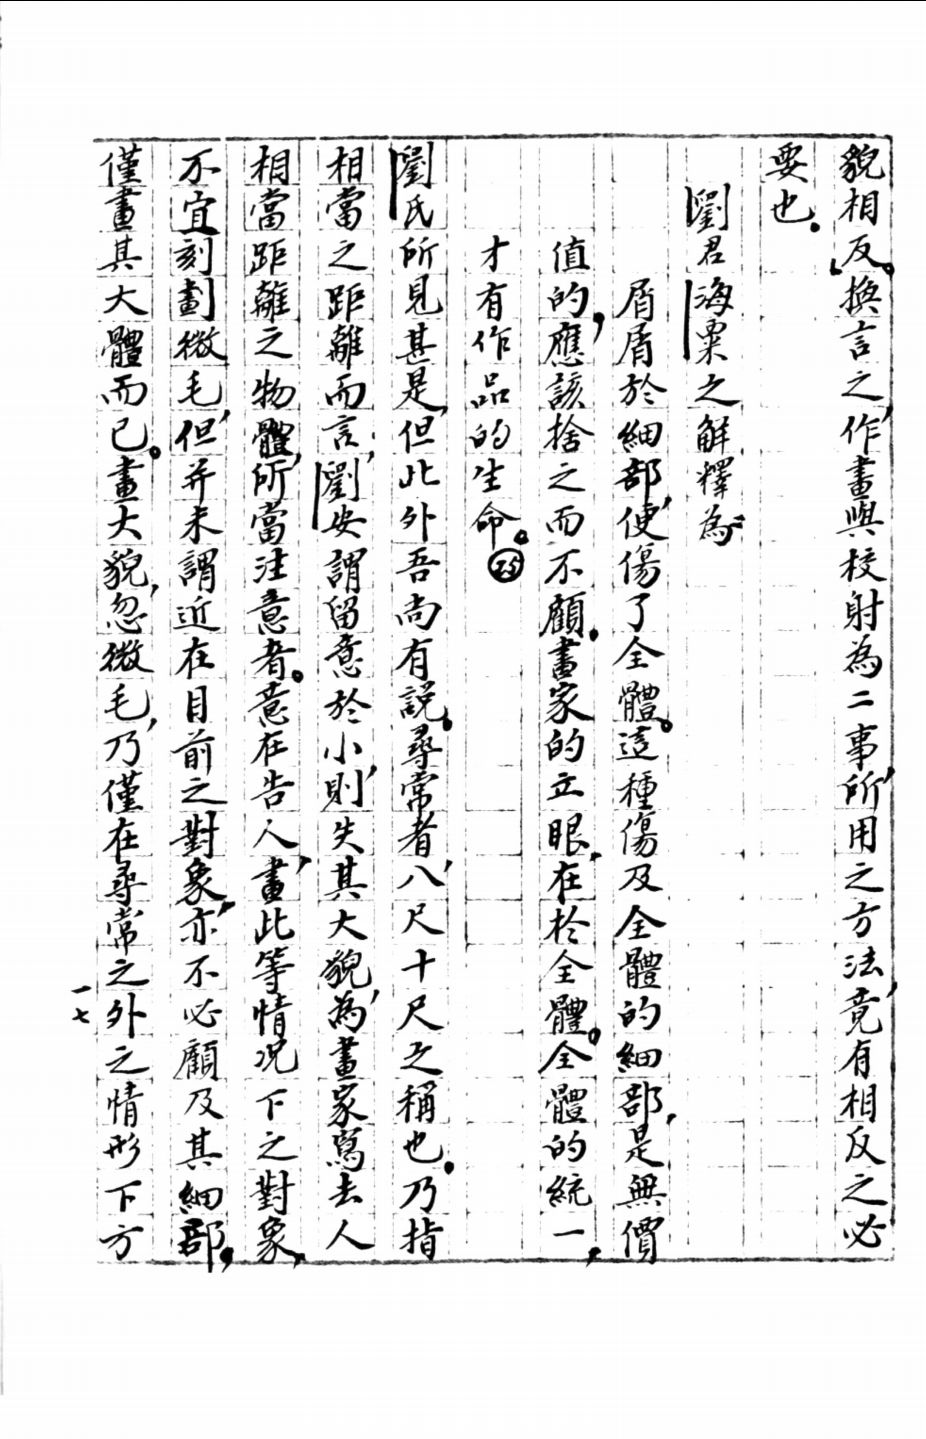 貌相反。換言之，作畫與校射為二事，所用之方法，竟有相反之必
要也。
劉君海粟之解釋為：
屑屑於細部，便傷了全體。這種傷及全體的細部，是無價
值的，應該捨之而不顧。畫家的立眼，在於全體。全體的統一，
才有作品的生命。㉕
劉氏所見甚是，但此外吾尚有說。尋常者，八尺十尺之稱也。乃指
相當之距離而言，劉安謂留意於小，則失其大貌，為畫家寫去人
相當距離之物體，所當注意者。意在告人，畫此等情況下之對象，
不宜刻劃微毛，但并未謂近在目前之對象，亦不必顧及其細部，
僅畫其大體而已。畫大貌，忽微毛，乃僅在尋常之外之情形下方
一七